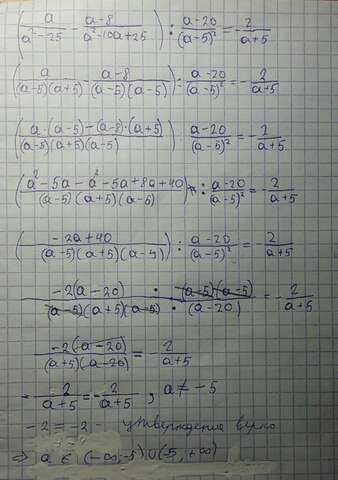 (a/(a²-25) - (a-8)/(a²-10a+25)) : (a-20)/(a-5)² = -2/(a+5)
(a/((a-5)(a+5)) - (a-8)/((a-5)(a-5))) : (a-20)/(a-5)² = -2/(a+5)
((a·(a-5)-(a-8)·(a+5))/((a-5)(a+5)(a-5))) (a-20)/(a-5)² = -2/(a+5)
((a²-5a-a²-5a+8a+40)/((a-5)(a+5)(a-5))) : (a-20)/(a-5)² = -2/(a+5)
((-2a+40)/((a-5)(a+5)(a-5))) : (a-20)/(a-5)² = -2/(a+5)
-2(a-20)/((a-5)(a+5)(a-5)) · (a-5)(a-5)/(a-20) = -2/(a+5)
-2(a-20)/((a+5)(a-20)) = -2/(a+5)
-2/(a+5) = -2/(a+5), a ≠ -5
-2 = -2 - утверждение верно
⇒ a ∈ (-∞,-5)∪(-5,+∞)